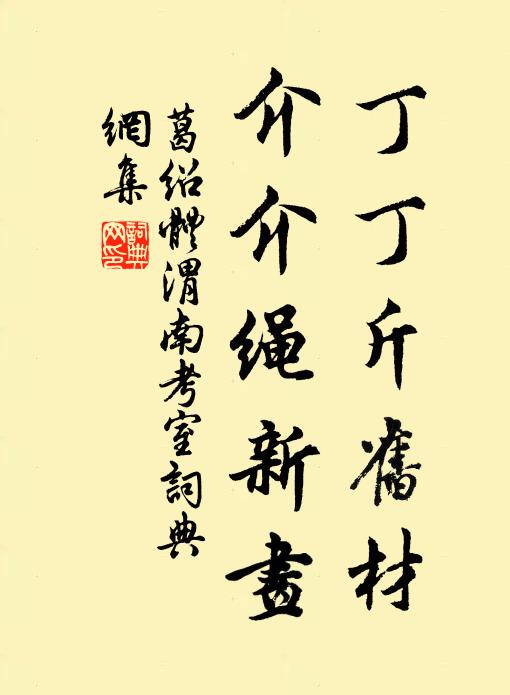 丁丁斤舊材
介介绳新畫
葛绍體渭南考室詞典
網集
詞典网印